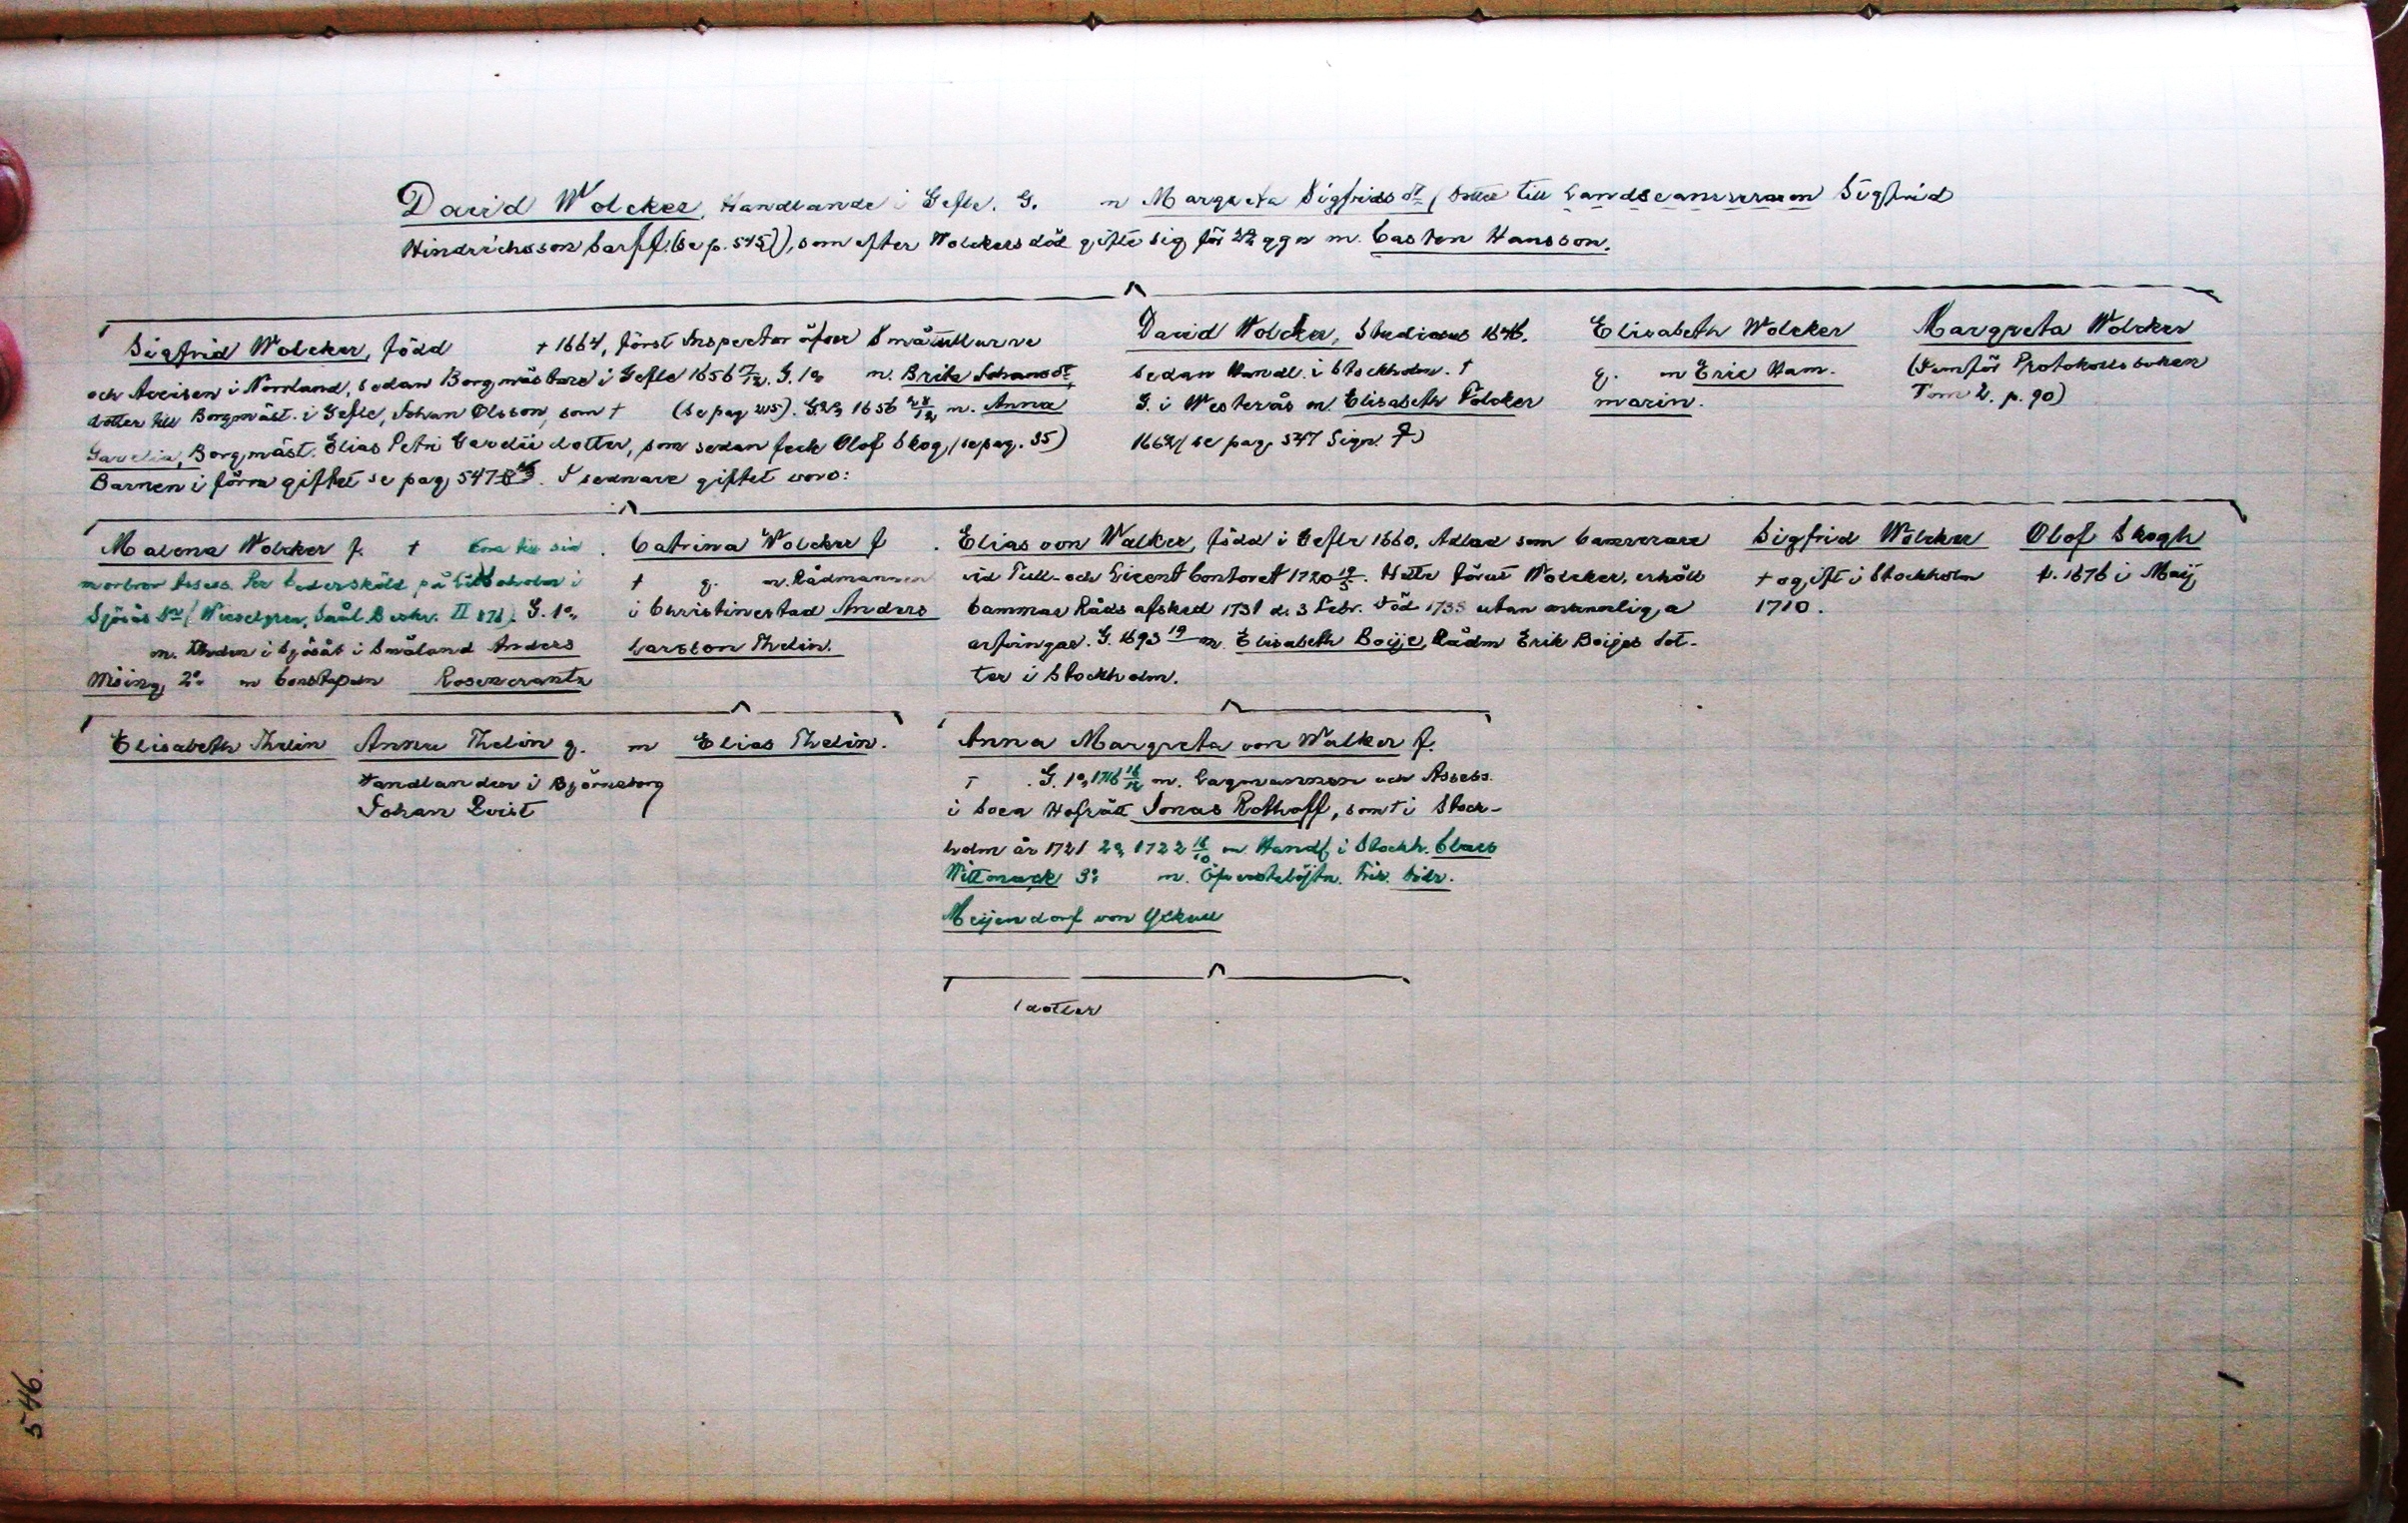 David Wolcker, Handlande i Gefle. G. m Margreta Sigfridsdr (dotter till Landscamreraren Sigfrid
Hindrichsson Carff. (se p. 545)), som efter Wolckers död gifte sig för 2a ggn m. Casten Hansson.
Sigfrid Wolcker, född † 1664, först Inspector öfver Småtullarne
och Accisen i Norrland, sedan Borgmästare i Gefle 1656 7/12. G. 1o m. Brita Johansdr,
dotter till Borgmäst. i Gefle, Johan Olsson, som † (se pag 205). G. 2o 1656 28/12 m. Anna
Gavelia, Borgmäst. Elias Petri Gavelii dotter, som sedan feck Olof Skog, (se pag. 35)
Barnen i förra giftet se pag. 547. I sednare giftet voro:
David Wolcker, Studiosus 1646.
sedan Handl. i Stockholm. †
G. i Westerås m. Elisabeth Fölcker
1662 (se pag. 547 Sign. F)
Elisabeth Wolcker
g. m Eric Ham-
marin.
Margreta Wolcker
(Jemför Protokollsboken
Tom 2. p. 90)
Malena Wolcker f. † kom till sin
morbror Assess. Per Cederskiöld på i
Sjösås Sn (Wieselgren, Smål. Beskr. II 876). G. 1o,
m. i Sjösås i Småland Anders
Möing, 2o m Constapeln Rosencrantz
Catrina Wolcker f
† g. m. Rådmannen
i Christinestad Anders
Larsson Thelin.
Elias von Walker, född i Gefle 1660. Adlad som Camrerare
vid Tull- och Licent Contoret 1720 19/5. Hette förut Wolcker, erhöll
Cammar Råds afsked 1731 d. 3 Febr. Död 1735 utan manliga
arfvingar. G. 1693 19 m. Elisabeth Boije, Rådm Erik Boijes dot-
ter i Stockholm.
Sigfrid Wölcker
† ogift i Stockholm
1710.
Olof Skogh
†. 1676 i Maij
Elisabeth Thelin
Anna Thelin g. m
Handlanden i Björneborg
Johan Qvist
Elias Thelin.
Anna Margreta von Walker f.
† . G. 1o, 1716 16/12 m. Lagmannen och Assess.
i Svea Hofrätt Jonas Rothoff, som † i Stock-
holm år 1721 2o, 1722 16/10 m Handl. i Stockh. Claes
Wittmack 3o m. Öfverstelöjtn. Frih. Fidr.
Meijendorf von Yckull
1 dotter
546.